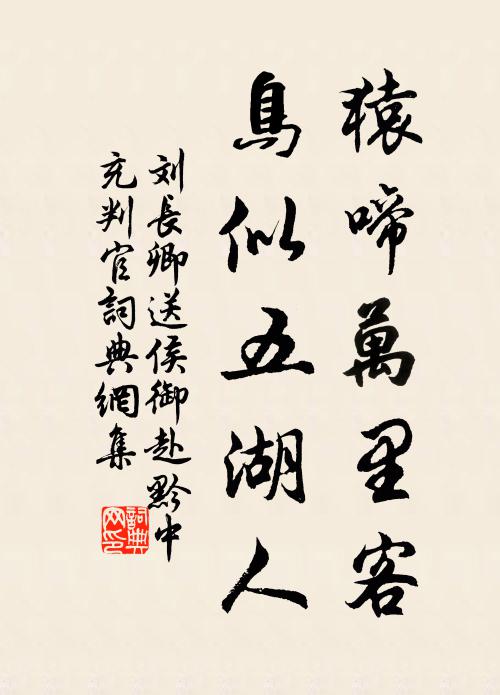 猿啼萬里客
鳥似五湖人
刘長卿送侯御赴黔中
充判官詞典網集
詞典网印